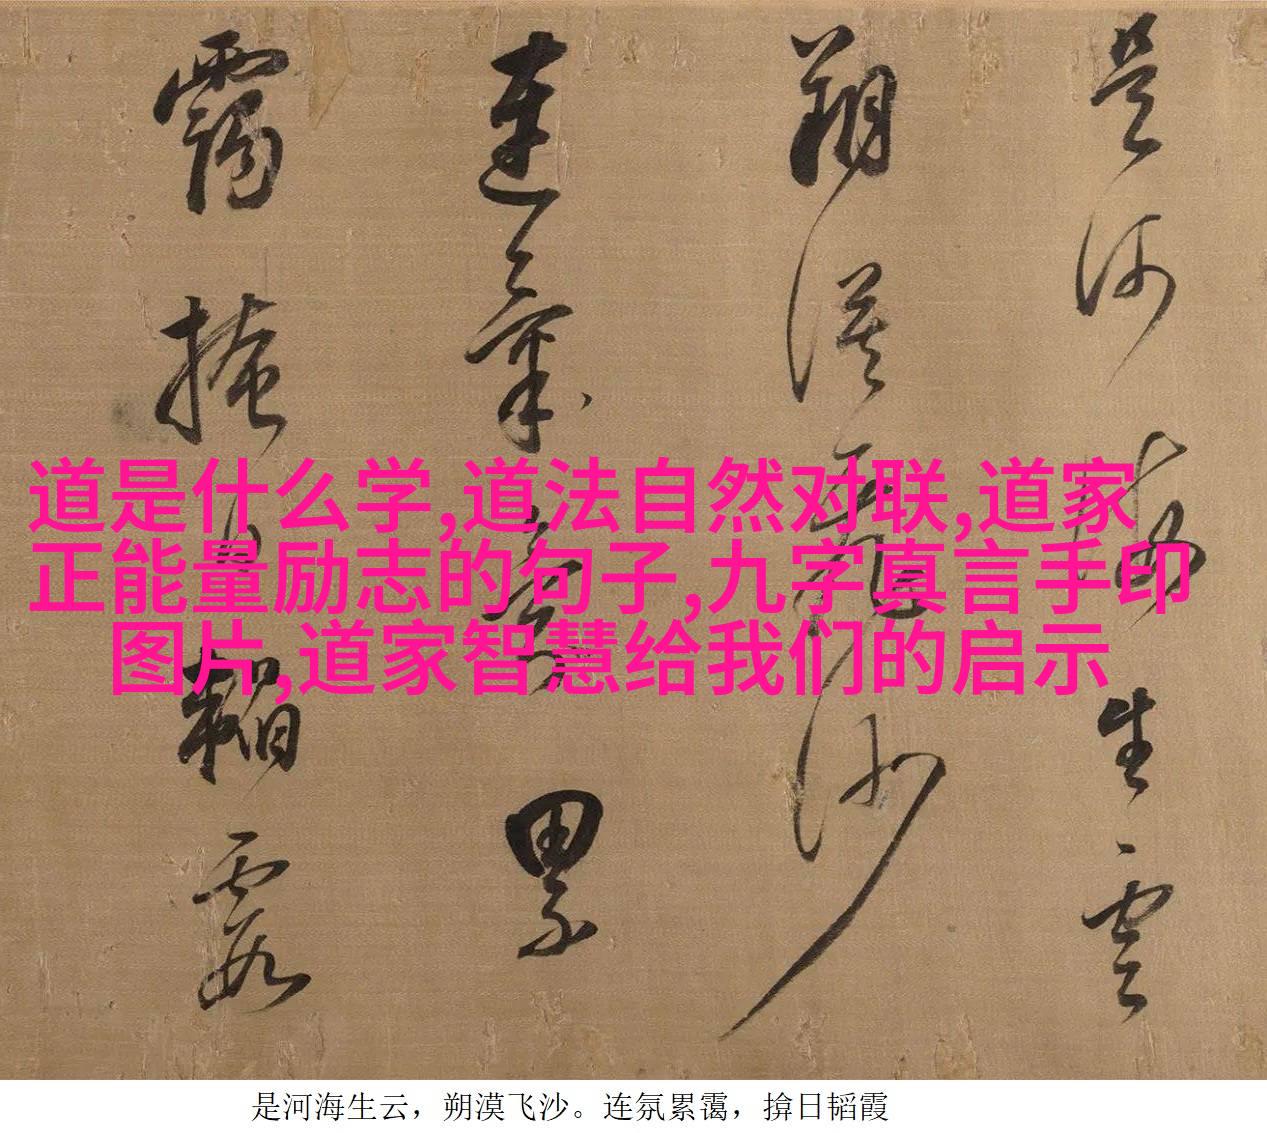 是河海生雲
朔漠飛沙
連氣累
靄掩日韜霞
道是什么学,道法自然对联,道家
正能量励志的句子,九字真言手印
图片,道家智慧给我们的启示
是河海生云，朔漠飞沙。连氛累霭，揜日韬霞